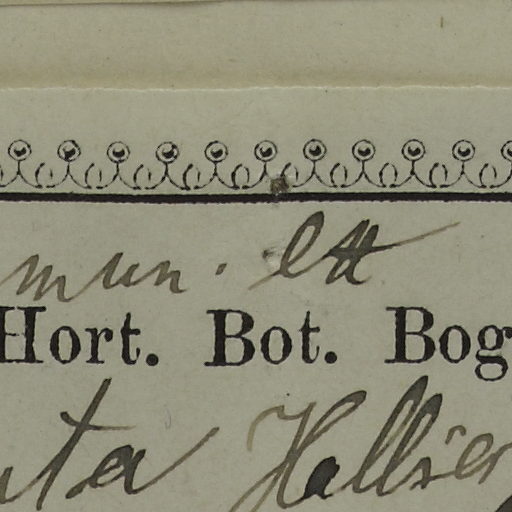 mun. ex
Hort. Bot. Bog
uta Hallier